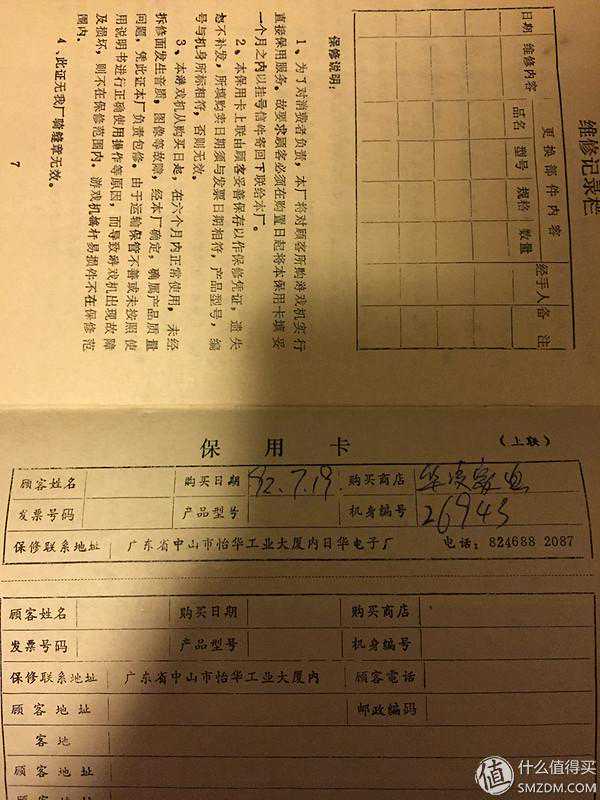 维修记录栏
日期 维修内容 更换部件内容 经手人 备注
品名 型号 规格 数量
保修说明：
1、为了对消费者负责，本厂将对顾客所购游戏机实行
直接保用服务。故要求顾客必须在购置日起将本保用卡填妥
一个月之内以挂号信件寄回下联给本厂。
2、本保用卡上联由顾客妥善保存以作保修凭证，遗失
恕不补发，所填购卖日期须与发票日期相符，产品型号，编
号与机身所标相符，否则无效。
3、本游戏机从购买日起，在六个月内正常使用，未经
拆修而发生音质，图像等故障，经本厂确定，确属产品质量
问题，凭此证本厂负责包修。由于运输保管不善或未按照使
用说明书进行正确使用操作等原因，而导致游戏机出现故障
及损坏，则不在保修范围内。游戏机摇杆易损件不在保修范
围内。
4、此证无我厂骑缝章无效。
7
保用卡 （上联）
顾客姓名 购买日期 92.7.19. 购买商店
发票号码 产品型号 机身编号 26943
保修联系地址 广东省中山市怡华工业大厦内日华电子厂 电话：824688 2087
顾客姓名 购买日期 购买商店
发票号码 产品型号 机身编号
保修联系地址 广东省中山市怡华工业大厦内 顾客電话
顾客地址 邮政编码
客地
顾客地址
顾客地址
值 什么值得买
SMZDM.COM